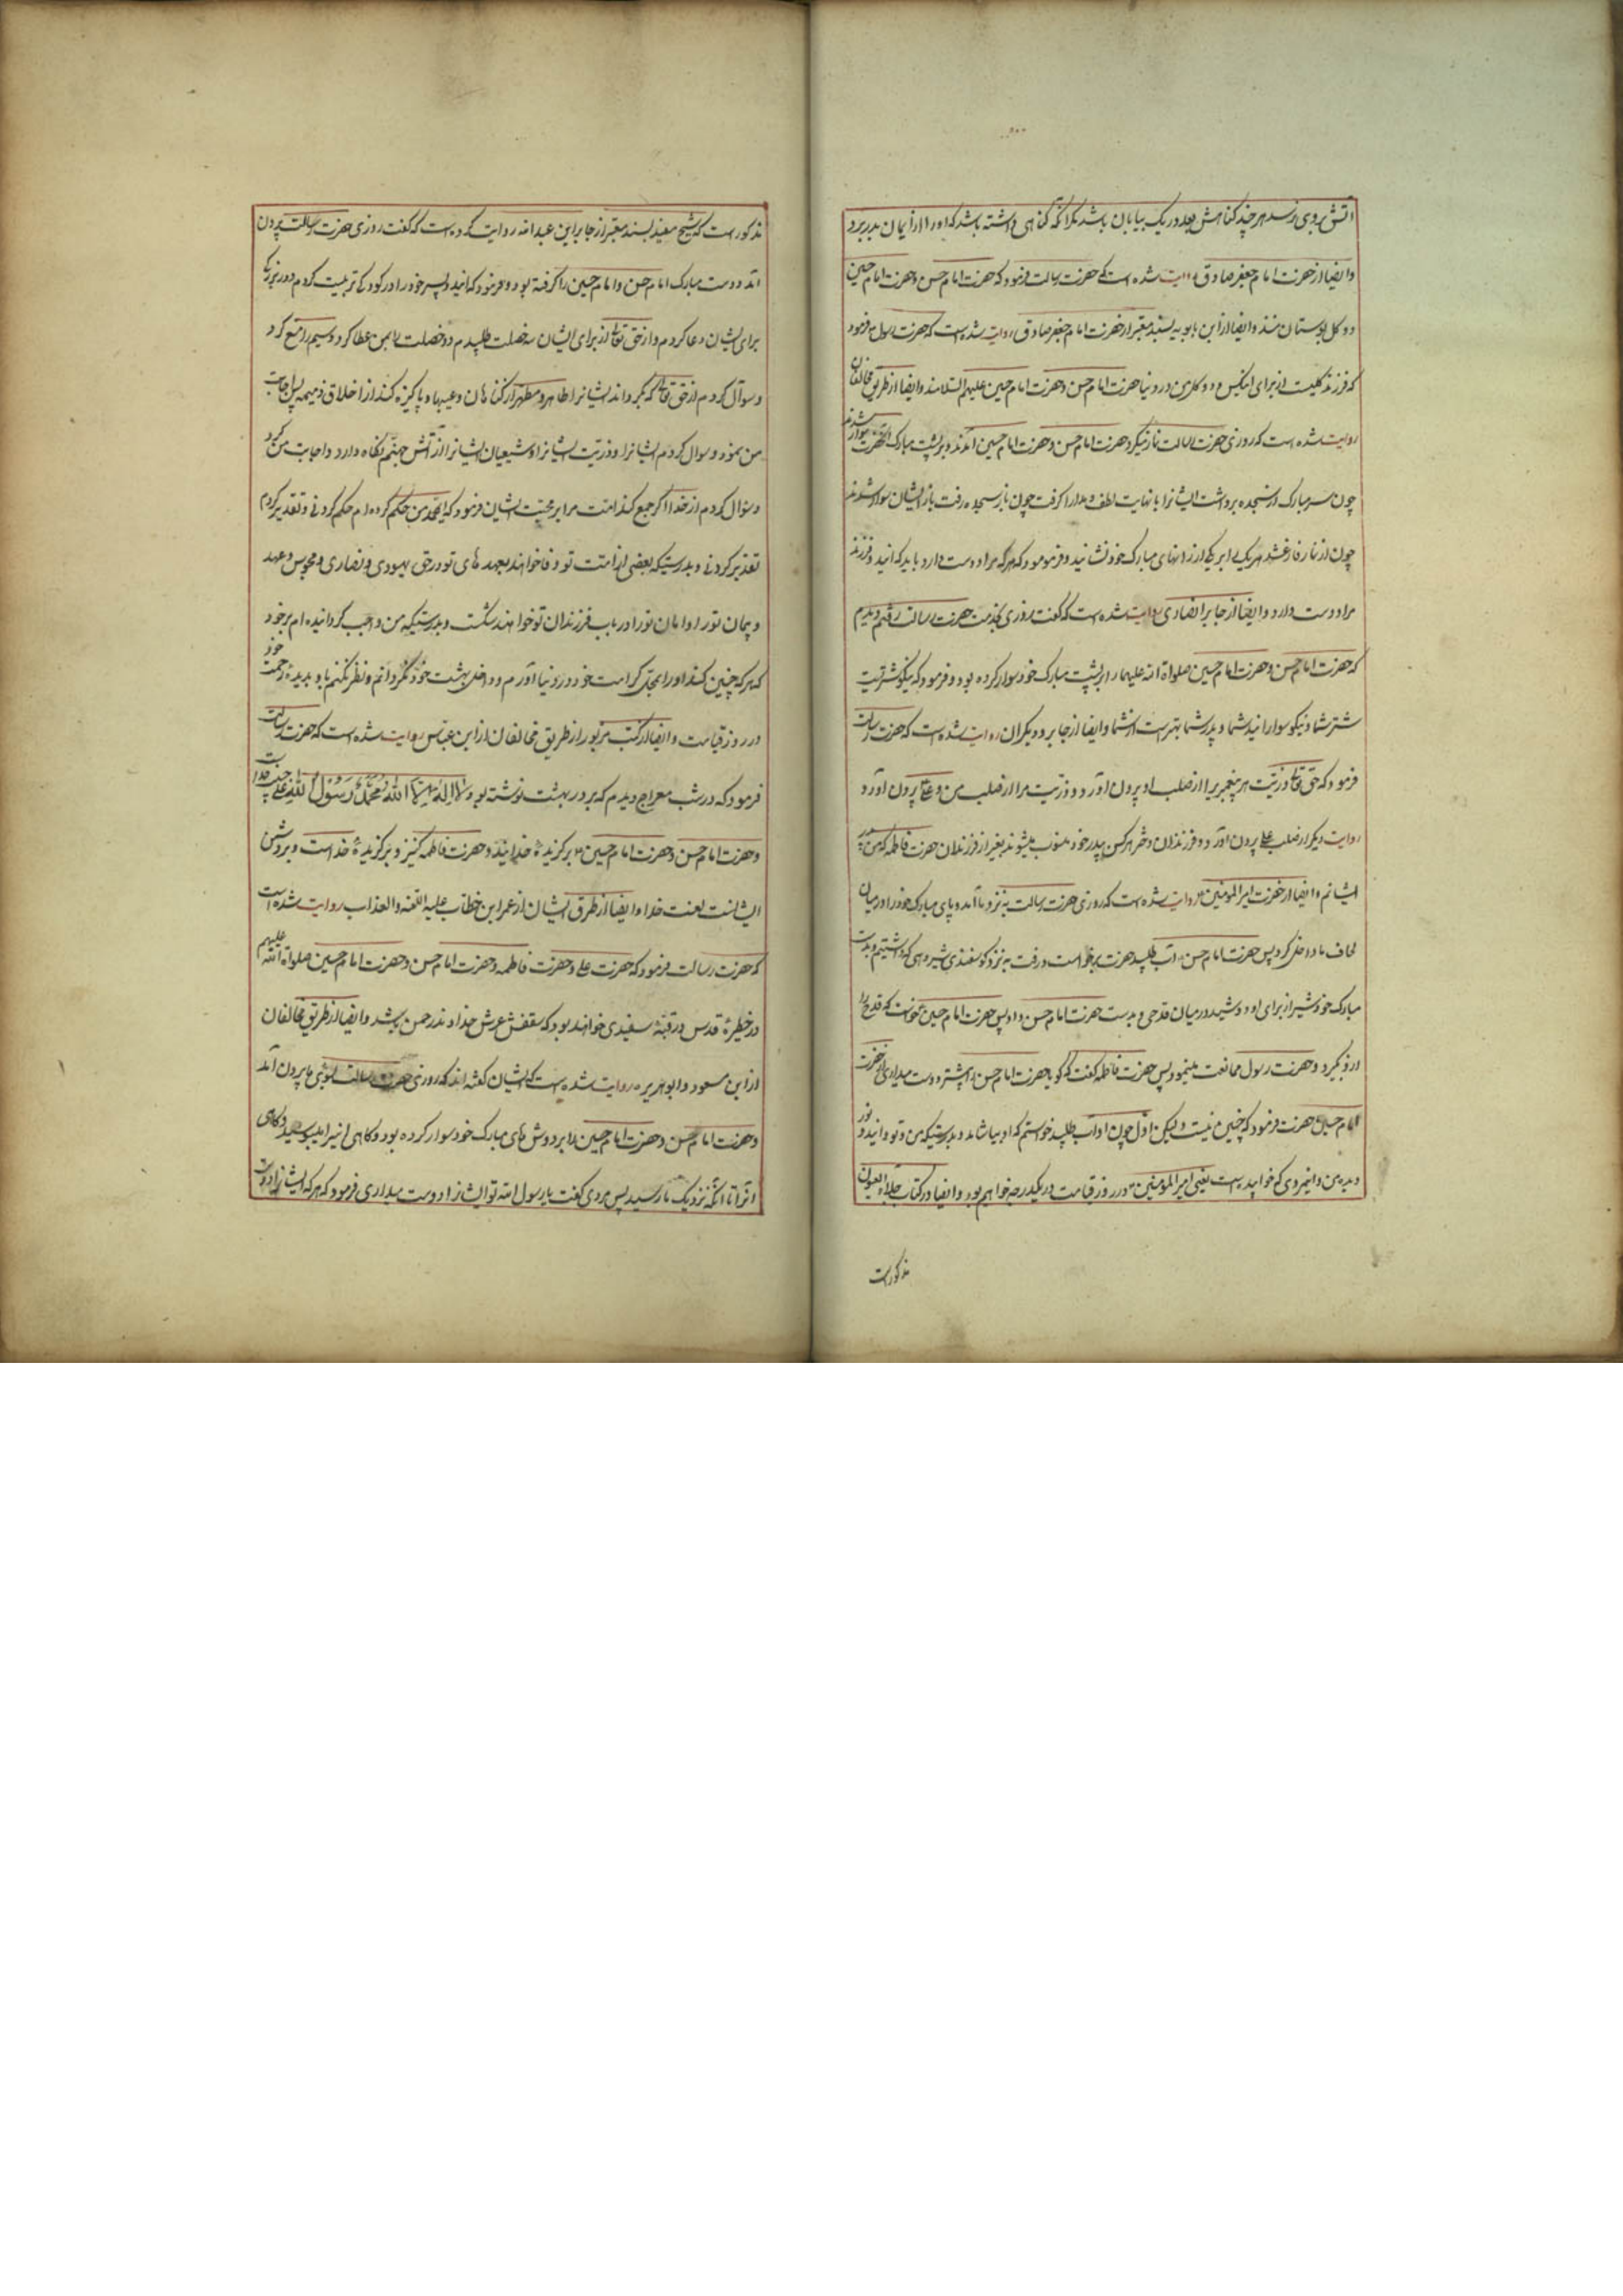 اتش بروی نرسد هر چند کناهش بعدد ریک بیابان باشد مکر انکه کناهی داشته باشد که او را از ایمان بدر برد
وایضا از حضرت امام جعفر صادق روایت شده است که حضرت رسالت فرمود که حضرت امام حسن و حضرت امام حسین
دو کل بوستان منند وایضا از ابن بابویه بسند معتبر از حضرت امام جعفر صادق روایت شده است که حضرت رسول فرمود
که فرزند کلیست از برای انکس و دو کل من در دنیا حضرت امام حسن و حضرت امام حسین علیهم السلامند وایضا از طریق مخالفان
روایت شده است که روزی حضرت رسالت نماز میکرد حضرت امام حسن و حضرت امام حسین امدند و بر پشت مبارک انحضرت سوار شدند
چون سر مبارک از سجده برداشت ایشانرا با نهایت لطف و مدارا کرفت چون باز بسجده رفت باز ایشان سوار شدند
چون از نماز فارغ شد هر یک را بر یکی از رانهای مبارک خود نشانید و فرمود که هر که مرا دوست دارد باید که ایندو فرزند
مرا دوست دارد وایضا از جابر انصاری روایت شده است که کفت روزی بخدمت حضرت رسالت رفتم و دیدم
که حضرت امام حسن و حضرت امام حسین صلواة الله علیهما را بر پشت مبارک خود سوار کرده بود و فرمود که نیکو شتریست
شتر شما و نیکو سوارانید شما و پدر شما بهتر است از شما وایضا از جابر و دیکران روایت شده است که حضرت رسالت
فرمود که حق تعالی ذریّت هر پیغمبریرا از صلب او بیرون اورد و ذریّت مرا از صلب من و علی بیرون اورد و
روایت دیکر از صلب علی بیرون اورد و فرزندان دختر هر کس بپدر خود منسوب میشوند بغیر از فرزندان حضرت فاطمه که من پدر
ایشانم وایضا از حضرت امیر المومنین روایت شده است که روزی حضرت رسالت بنزد ما آمد و پای مبارک خود را در میان
لحاف ما داخل کرد پس حضرت امام حسن آب طلبید حضرت برخواست و رفت بنزد کوسفندی شیردهی که داشتیم و بدست
مبارک خود شیر از برای او دوشید در میان قدحی و بدست حضرت امام حسن داد پس حضرت امام حسین خواست که قدح را
از او بکیرد و حضرت رسول ممانعت مینمود پس حضرت فاطمه کفت که کویا حضرت امام حسن را بیشتر دوست میداری از حضرت
امام حسین حضرت فرمود که چنین نیست ولیکن اول چون او آب طلبید خواستم که او بیاشامد و بدرستیکه من و تو و ایندو نور
دیده من و انمردی که خوابیده است یعنی امیر المومنین در روز قیامت در یکدرجه خواهیم بود وایضا در کتاب جلاء العیون
مذکورست
مذکور است که شیخ مفید بسند معتبر از جابر ابن عبدالله روایت کرده است که کفت روزی حضرت رسالت بیرون
آمد و دست مبارک امام حسن و امام حسین را کرفته بود و فرمود که ایندو پسر خود را در کودکی تربیت کردم و در بزرکی
برای ایشان دعا کردم و از حق تعالی از برای ایشان سه خصلت طلبیدم دو خصلت را بمن عطا کرد و سیم را منع کرد
و سوآل کردم از حق تعالی که بکرداند ایشانرا طاهر و مطهر از کناهان و عیبها و پاکیزه کند از اخلاق ذمیمه پس اجابت
من نمود و سوال کردم ایشانرا و ذریت ایشانرا و شیعیان ایشانرا از آتش جهنّم نکاه دارد و اجابت من کرد
و سؤال کردم از خدا که جمع کند امت مرا بر محبت ایشان فرمود که ایمحمّد من حکم کرده ام حکم کردنی و تقدیر کردم
تقدیر کردنی و بدرستیکه بعضی از امت تو وفا خواهند بعهدهای تو در حق یهودی و نصاری و مجوس و عهد
و پیمان تو را و امان تو را در باب فرزندان تو خواهند شکست و بدرستیکه من واجب کردانیده ام بر خود
که هر که چنین کند او را بمحل کرامت خود در دنیا نیاورم و داخل بهشت خود نکردانم و نظر نکنم باو بدیدهٔ رحمت خود
در روز قیامت وایضا از کتب مزبور از طریق مخالفان از ابن عباس روایت شده است که حضرت رسالت
فرمود که در شب معراج دیدم که بر در بهشت نوشته بود لا اله الا الله محمد رسول الله علی حبیب خدا است
و حضرت امام حسن و حضرت امام حسین برکزیدهٔ خدایند و حضرت فاطمه کنیز و برکزیدهٔ خداست و بر دشمن
ایشانست لعنت خدا وایضا از طرق ایشان از عمر ابن خطاب علیه اللعنه و العذاب روایت شده است
که حضرت رسالت فرمود که حضرت علی و حضرت فاطمه و حضرت امام حسن و حضرت امام حسین صلواة الله علیهم
در خطیرهٔ قدس در قبّهٔ سفیدی خواهند بود که سقفش عرش خداوند رحمن باشد وایضا از طریق مخالفان
از ابن مسعود و ابو هریره روایت شده است که ایشان کفته اند که روزی حضرت رسالت بسوی ما بیرون آمد
و حضرت امام حسن و حضرت امام حسین را بر دوش های مبارک خود سوار کرده بود و کاهی اینرا میبوسید و کاهی
انرا تا انکه نزدیک ما رسید پس مردی کفت یا رسول الله تو ایشانرا دوست میداری فرمود که هر که ایشانرا دوست